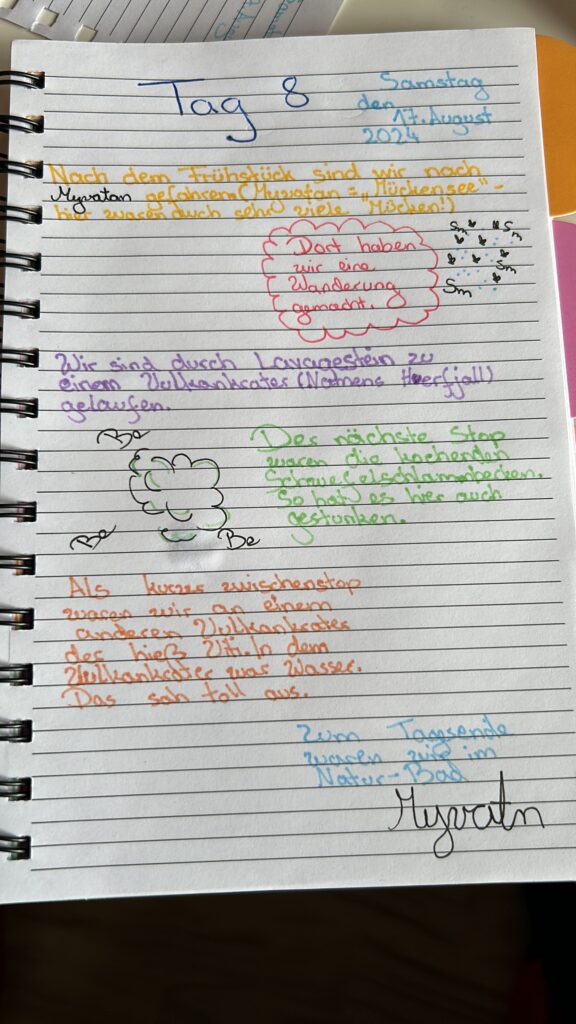 Tag 8
Samstag
den
17. August
2024
Nach dem Frühstück sind wir nach
Myvatan gefahren (Myvatan = "Mückensee" -
hier waren auch sehr viele "Mücken!)
Dort haben
wir eine
Wanderung
gemacht.
Sm
Sm
Sm
Sm
Wir sind durch Lavagestein zu
einem Vulkankrater (Namens Hverfjall)
gelaufen.
Be
Be
Be
Der nächste Stop
waren die kochenden
Schwefelschlammbecken.
So hat es hier auch
gestunken.
Als kurzer zwischenstop
waren wir an einem
anderen Vulkankrater
der hieß Viti. In dem
Vulkankrater war Wasser.
Das sah toll aus.
Zum Tagesende
waren wir im
Natur-Bad
Myvatn